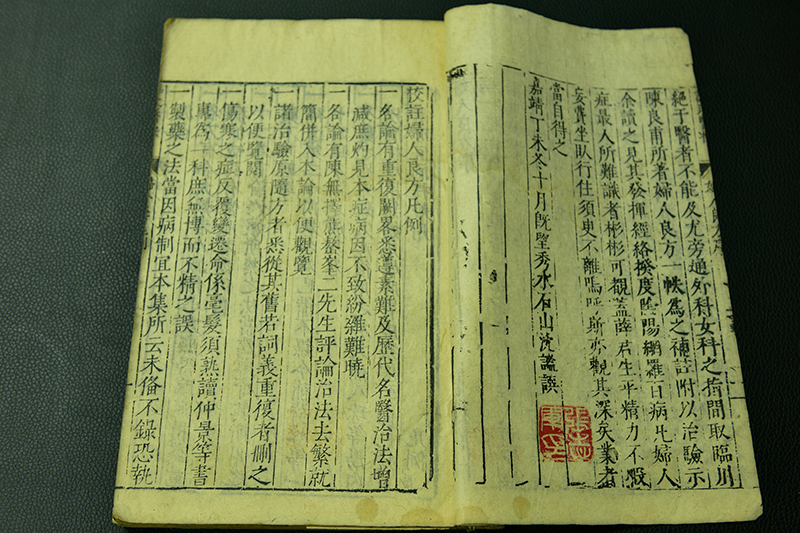 絕于醫者不能及尤旁通外科女科之㫖間取臨川
陳良甫所著婦人良方一帙為之補註附以治驗示
余讀之見其發揮經絡揆度陰陽網羅百病凡婦人
症最人所難識者彬彬可觀蓋薛君生平精力不暇
妄費坐臥行住須更不離嗚呼斯亦觀其深矣業者
當自得之
嘉靖丁未冬十月既望秀水石山沈謐譔
校註婦人良方凡例
一各論有重復闕畧悉遵素難及歷代名醫治法增
減庶灼見本症病因不致紛雜難曉
一各論有陳無擇熊鰲峯二先生評論治法去繁就
簡併入本論以便觀覽
一諸治驗原隨方者悉從其舊若詞義重復者刪之
以便覽閱
一傷寒之症反覆變遷命係毫髮須熟讀仲景等書
專為一科庶無博而不精之誤
一製藥之法當因病制宜本集所云未俻不錄恐執